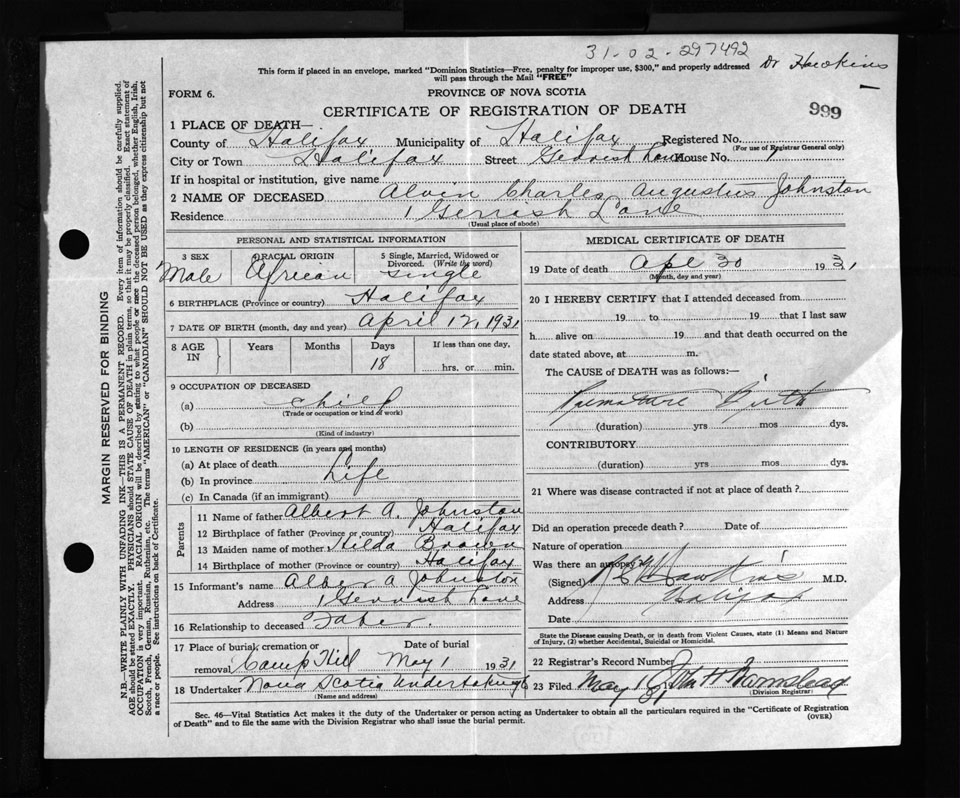 31-02-297492
This form if placed in an envelope, marked "Dominion Statistics—Free, penalty for improper use, $300," and properly addressed
will pass through the Mail "FREE"
Dr Hawkins
FORM 6.
PROVINCE OF NOVA SCOTIA
CERTIFICATE OF REGISTRATION OF DEATH
999
1 PLACE OF DEATH—
County of Halifax Municipality of Halifax Registered No.
(For use of Registrar General only)
City or Town Halifax Street Gerrish Lane House No. 1
If in hospital or institution, give name
2 NAME OF DECEASED Alvin Charles Augustus Johnston
Residence 1 Gerrish Lane
(Usual place of abode)
PERSONAL AND STATISTICAL INFORMATION
3 SEX RACIAL ORIGIN 5 Single, Married, Widowed or
Divorced. (Write the word)
Male African Single
6 BIRTHPLACE (Province or country) Halifax
7 DATE OF BIRTH (month, day and year) April 12, 1931
8 AGE IN Years Months Days If less than one day.
18 hrs. or min.
9 OCCUPATION OF DECEASED
(a) child
(Trade or occupation or kind of work)
(b)
(Kind of industry)
10 LENGTH OF RESIDENCE (in years and months)
(a) At place of death
(b) In province Life
(c) In Canada (if an immigrant)
Parents
11 Name of father Albert A. Johnston
12 Birthplace of father (Province or country) Halifax
13 Maiden name of mother Hilda Brown
14 Birthplace of mother (Province or country) Halifax
15 Informant's name Alber A Johnston
Address 1 Gerrish Lane
16 Relationship to deceased Father.
17 Place of burial, cremation or Date of burial
removal Camp Hill May 1 1931
18 Undertaker Nova Scotia Undertaking
(Name and address)
MEDICAL CERTIFICATE OF DEATH
19 Date of death Apl 30 1931
(Month, day and year)
20 I HEREBY CERTIFY that I attended deceased from
19 to 19 that I last saw
h alive on 19 and that death occurred on the
date stated above, at m.
The CAUSE of DEATH was as follows:—
Premature Birth
(duration) yrs mos dys.
CONTRIBUTORY
(duration) yrs mos dys.
21 Where was disease contracted if not at place of death?
Did an operation precede death? Date of
Nature of operation
Was there an autopsy?
(Signed) Hawkins M.D.
Address Halifax
Date
State the Disease causing Death, or in death from Violent Causes, state (1) Means and Nature
of Injury, (2) whether Accidental, Suicidal or Homicidal.
22 Registrar's Record Number
23 Filed May 1 19 John H
(Division Registrar)
Sec. 46—Vital Statistics Act makes it the duty of the Undertaker or person acting as Undertaker to obtain all the particulars required in the "Certificate of Registration
of Death" and to file the same with the Division Registrar who shall issue the burial permit.
(OVER)
MARGIN RESERVED FOR BINDING
N.B.—WRITE PLAINLY WITH UNFADING INK—THIS IS A PERMANENT RECORD. Every item of information should be carefully supplied.
AGE should be stated EXACTLY. PHYSICIANS should STATE CAUSE OF DEATH in plain terms, so that it may be properly classified. Exact statement of
OCCUPATION is very important. RACIAL ORIGIN will be described by stating to what people or race the deceased person belonged, whether English, Irish,
Scotch, French, German, Russian, Ruthenian, etc. The terms "AMERICAN" or "CANADIAN" SHOULD NOT BE USED as they express citizenship but not
a race or people. See instructions on back of Certificate.